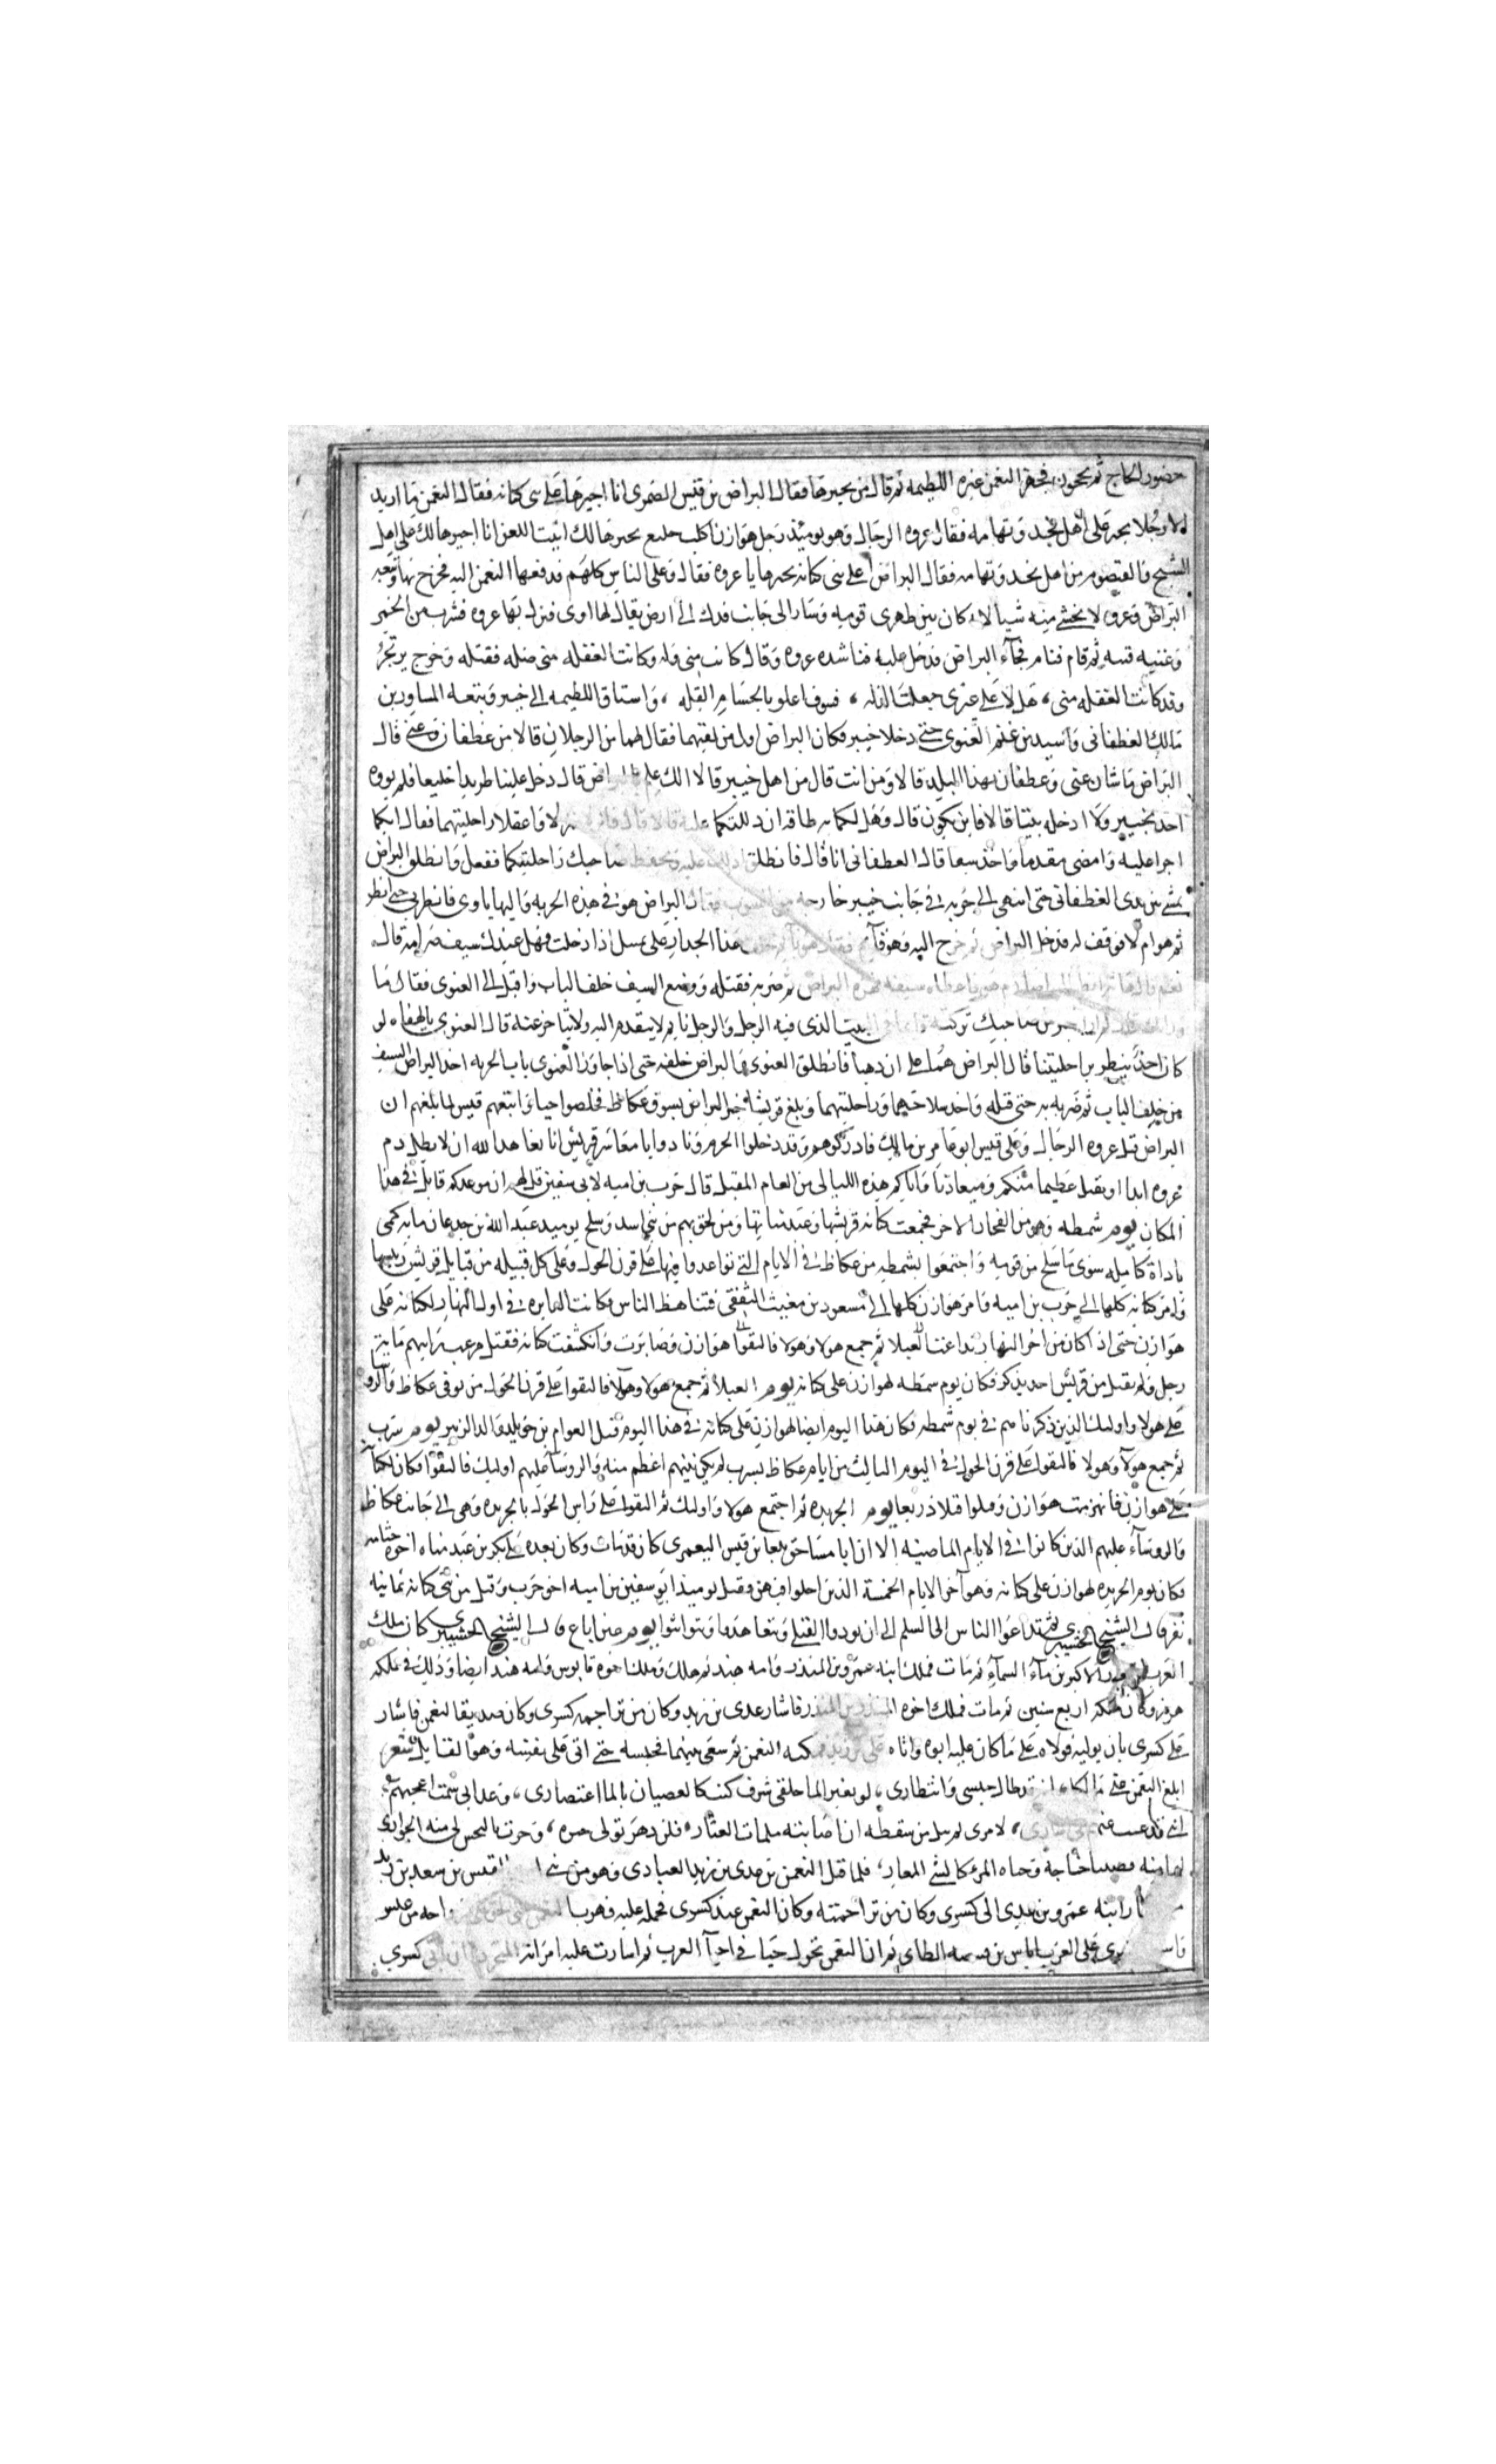 حضور الحاج ثم يحجون فجهز النعمن عير اللطيمه ثم قال من يجيرها فقال البراض بن قيس الضمرى انا اجيرها على بنى كنانه فقال النعمن ما اريد
الا رجلا يجير على اهل نجد وتهامه فقال عروه الرحال وهو يوميذ رجل هوازن اكلب خليع يجيرها لك ابيت اللعن انا اجيرها لك على اهل
الشيح والقيصوم من اهل نجد وتهامه فقال البراض اعلى بنى كنانه تجيرها يا عروه فقال وعلى الناس كلهم فدفعها النعمن اليه فخرج بها وتبعه
البراض وعروه لا يخشى منه شيا لانه كان بين ظهرى قوميه وسار الى جانب فدك الى ارض يقال لها اوى فنزل بها عروه فشرب من الخمر
وغنيه قينه ثم قام فنام فجآء البراض فدخل عليه فناشده عروه وقال كانت منى زله وكانت الغفله منى ضله فقتله وخرج يرتجز
وقد كانت الغفله منى، هلا على غيرى جعلت الزله، فسوف اعلو بالحسام القله، واستاق اللطيمه الى خيبر وتبعه المساور بن
مالك الغطفانى واسيد بن غنم الغنوى حتى دخلا خيبر فكان البراض اول من لقيهما فقال لهما من الرجلان قالا من غطفان وغنى قال
البراض ما شان غنى وغطفان بهذا البلد قالا ومن انت قال من اهل خيبر قالا الك علم بالبراض قال دخل علينا طريدا خليعا فلم يووه
احد بخيبر ولا ادخله بيتا قالا فاين يكون قال وهل لكما به طاقه ان دللتكما عليه قالا قال فانزلا فنزلا وعقلا راحلتيهما فقال ايكما
اجرا عليه وامضى مقدما واحد سيفا قال الغطفانى انا قال فانطلق ادلك عليه ويحفظ صاحبك راحلتيكما ففعل وانطلق البراض
يمشى بين يدى الغطفانى حتى انتهى الى خربه فى جانب خيبر خارجه من البيوت فقال البراض هو فى هذه الخربه واليها ياوى فانظرنى حتى انظر
ثم هو ام لا فوقف له فدخل البراض ثم خرج اليه وهو قايم فقال هو نايم خلف هذا الجدار على يسارك اذا دخلت فهل عندك سيف صرامه قال
نعم قال هات انظر اليه اصارم هو فاعطاه سيفه فهزه البراض ثم ضربه فقتله ووضع السيف خلف الباب واقبل الى الغنوى فقال ما
وراك قال لم ار اجبن من صاحبك تركته قايما فى البيت الذى فيه الرجل والرجل نايم لا يتقدم اليه ولا يتاخر عنه قال الغنوى يالهفاه لو
كان احد ينظر براحلتينا قال البراض هما على ان ذهبا فانطلق الغنوى والبراض خلفه حتى اذا جاوز الغنوى باب الخربه اخذ البراض السيف
من خلف الباب ثم ضربه به حتى قتله واخذ سلاحيهما وراحلتيهما وبلغ قريشا خبر البراض بسوق عكاظ فخلصوا حيا واتبعتهم قيس لما بلغهم ان
البراض قتل عروه الرحال وعلى قيس ابو عامر بن مالك فادركوهم وقد دخلوا الحرم ونادوا يا معاشر قريش انا نعاهد الله ان لا يطل دم
عروه ابدا او يقتل عظيما منكم وميعادنا واياكم هذه الليالى من العام المقبل قال حرب بن اميه لابى سفين قل لهم ان موعدكم قابل فى هذا
المكان يوم شمطه وهو من الفجار الاخر فجمعت كنانه قريشها وعبد مناتها ومن لحق بهم من بنى اسد وسلح يوميد عبد الله بن جدعان مايه كمى
باداة كامله سوى ما سلح من قوميه واجتمعوا بشمطه من عكاظ فى الايام التى تواعدوا فيها على قرن الحول وعلى كل قبيله من قبايل قريش رييسها
وامر كنانه كلها الى حرب بن اميه وامر هوازن كلها الى مسعود بن مغيث الثقفى فتناهظ الناس وكانت الدايره فى اول النهار لكنانه على
هوازن حتى اذا كان من اخر النهار تداعت العبلا ثم جمع هولا وهولا فالتقوا هوازن وصابرت وانكشفت كنانه فقتل مرعب رايهم مايه
رجل ولم يقتل من قريش احد يذكر فكان يوم شمطه لهوازن على كنانه يوم العبلا ثم جمع هولا وهولا فالتقوا على قرن الحول من يوفى عكاظ والروسا
على هولا واوليك الذين ذكرنا هم فى يوم شمطه فكان هذا اليوم ايضا لهوازن على كنانه فى هذا اليوم قتل العوام بن خويلد والد الزبير يوم سرب
ثم جمع هولا وهولا فالتقوا على قرن الحول فى اليوم الثالث من ايام عكاظ بسرب لم يكن بينهم اعظم منه والروسا عليهم اوليك فالتقوا فكان لكنانه
على هوازن فانهزمت هوازن وقتلوا قتلا ذريعا يوم الحريره ثم اجتمع هولا واوليك ثم التقوا على راس الحول بالحريره وهى الى جانب عكاظ
والروسآء عليهم الذين كانوا فى الايام الماضيه الا ان ابا مساحق بلعا بن قيس اليعمرى كان قد مات وكان بعده على بكر بن عبد مناه اخوه جثامه
فكان يوم الحريره لهوازن على كنانه وهو آخر الايام الخمسة الذين احلوا فيهن وقتل يوميذ ابو سفين بن اميه اخو حرب وقتل من بنى كنانه ثمانيه
نفر قال الشيخ الحشيبرى ثم تداعوا الناس الى السلم الى ان يودوا القتلى وتعاهدوا وتواثقوا يوم عين اباغ قال الشيخ الحشيبرى كان ملك
العرب المنذر الاكبر بن مآء السمآء ثم مات فملك ابنه عمرو بن المنذر وامه هند ثم هلك وملك اخوه قابوس وامه هند ايضا وذلك فى ملكه
هرمز وكان ملكه اربع سنين ثم مات فملك اخوه المنذر بن المنذر فاشار عدى بن زيد وكان من تراجمه كسرى وكان صديقا للنعمن فاشار
على كسرى بان يوليه فولاه على ما كان عليه ابوه واتاه عدى بن زيد فمكنه النعمن ثم سعى بينهما فحبسه حتى اتى على نفسه وهو القايل شعر
ابلغ النعمن عنى مالكا، انه قد طال حبسى وانتظارى، لو بغير الما حلقى شرق كنت كالغصان بالما اعتصارى، وعدابى شمت اعجبهم
اننى غيبت عنهم فى اسارى، لامرى لم يبل من سقطه ان اصابته ملمات العثار، فلئن دهر تولى خيره، وجرت بالنحس لى منه الجوارى
لبما منه قضينا حاجة وحياه المرء كالشى المعار، فلما قتل النعمن بن عدى بن زيد العبادى وهو من بنى امرء القيس بن سعد بن زيد
ابنه عمرو بن عدى الى كسرى وكان من تراجمته وكان النعمن عند كسرى فحمله عليه فهرب النعمن حتى لحق واحه من عبس
كسرى على العرب اياس بن قبيصه الطاى ثم ان النعمن تحول حيا فى احيآ العرب ثم اشارت عليه امراته المتجرده ان ياتى كسرى